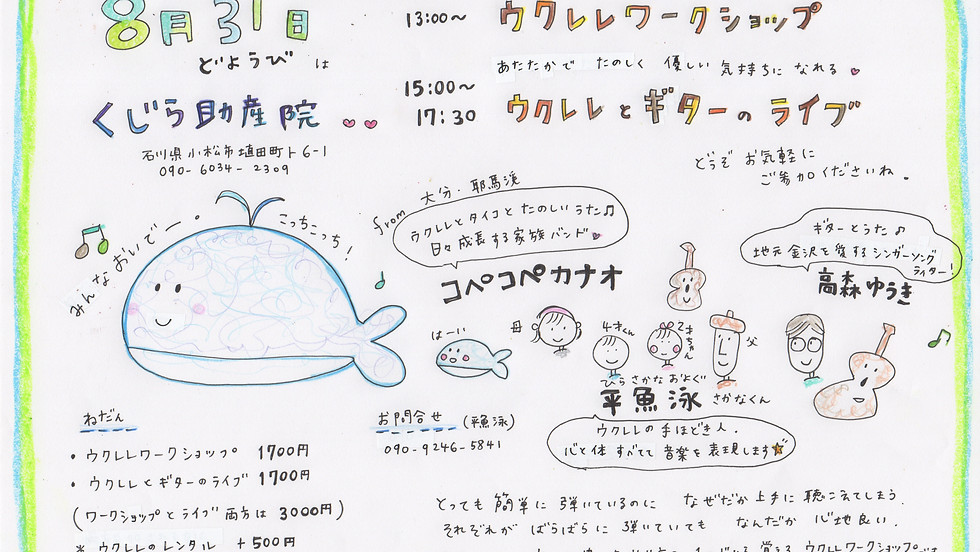 8月31日
どようび は
くじら助産院
石川県小松市埴田町ト6-1
090-6034-2309
13:00〜 ウクレレワークショップ
あたたかで たのしく 優しい 気持ちに なれる
15:00〜
17:30 ウクレレとギターのライブ
どうぞ お気軽に
ご参加くださいね。
みんなおいでー。
こっちこっち!
from 大分・耶馬渓
ウクレレとタイコと たのしい うた♫
日々成長する家族バンド
コペコペカナオ
ギターとうた♪
地元金沢を愛するシンガーソング
ライター!
高森ゆうき
はーい
母
4才くん
2才ちゃん
父
ひらさかな およぐ
平魚泳 さかなくん
ウクレレの手ほどき人.
心と体 すべてで 音楽を表現します
ねだん
・ウクレレワークショップ 1700円
・ウクレレとギターのライブ 1700円
(ワークショップとライブ両方は 3000円)
※ ウクレレのレンタル +500円
お問合せ (平魚泳)
090-9246-5841
とっても 簡単に 弾いているのに なぜだか上手に 聴こえてしまう.
それぞれが ばらばらに 弾いていても なんだか 心地良い.
ウクレレワークショップ